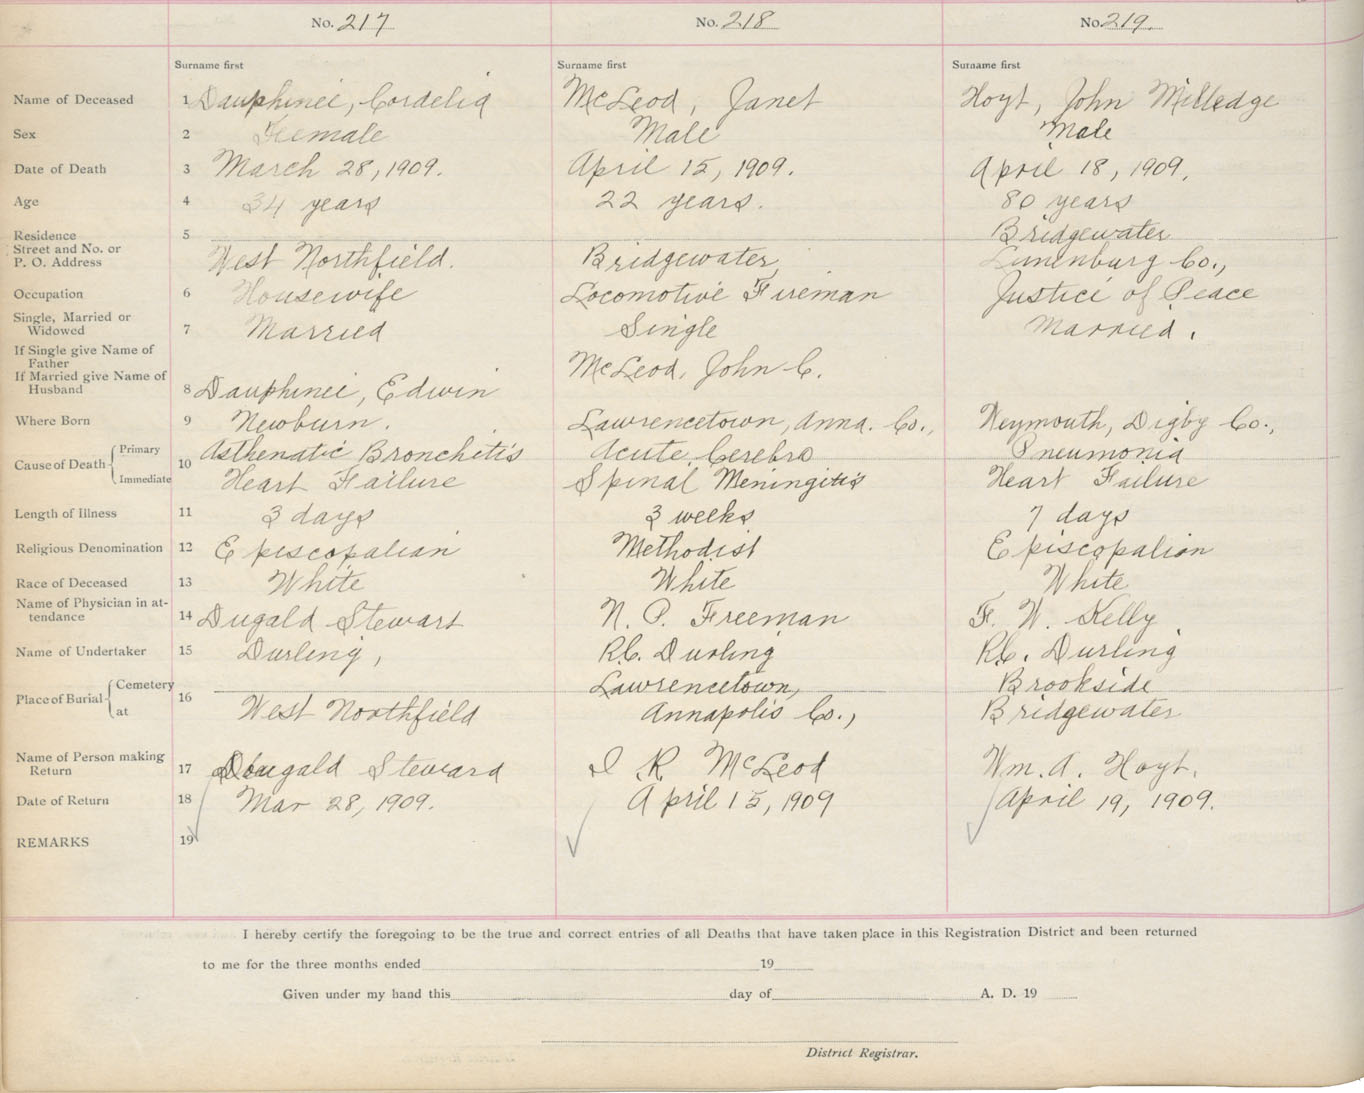 No. 217 No. 218 No. 219.
Surname first Surname first Surname first
Name of Deceased 1 Dauphinei, Cordelia McLeod, Janet Hoyt, John Milledge
Sex 2 Feemale Male Male
Date of Death 3 March 28, 1909. April 15, 1909. April 18, 1909.
Age 4 34 years 22 years. 80 years
Residence 5 Bridgewater
Street and No. or
P. O. Address West Northfield. Bridgewater, Lunenburg Co.,
Occupation 6 Housewife Locomotive Fireman Justice of Peace
Single, Married or
Widowed 7 Married Single Married.
If Single give Name of
Father McLeod, John C.
If Married give Name of
Husband 8 Dauphinei, Edwin
Where Born 9 Newburn. Lawrencetown, Anna. Co., Weymouth, Digby Co.,
Cause of Death Primary 10 Asthenatic Bronchitis Acute Cerebro Pneumonia
Immediate Heart Failure Spinal Meningitis Heart Failure
Length of Illness 11 3 days 3 weeks 7 days
Religious Denomination 12 Episcopalian Methodist Episcopalian
Race of Deceased 13 White White White
Name of Physician in at-
tendance 14 Dugald Stewart N. P. Freeman F. W. Kelly
Name of Undertaker 15 Durling, R.C. Durling R.C. Durling
Place of Burial Cemetery 16 Lawrencetown, Brookside
at West Northfield Annapolis Co., Bridgewater
Name of Person making
Return 17 Dougald Steward I. R. McLeod Wm. A. Hoyt.
Date of Return 18 Mar 28, 1909. April 15, 1909 April 19, 1909.
REMARKS 19
I hereby certify the foregoing to be the true and correct entries of all Deaths that have taken place in this Registration District and been returned
to me for the three months ended 19
Given under my hand this day of A. D. 19
District Registrar.